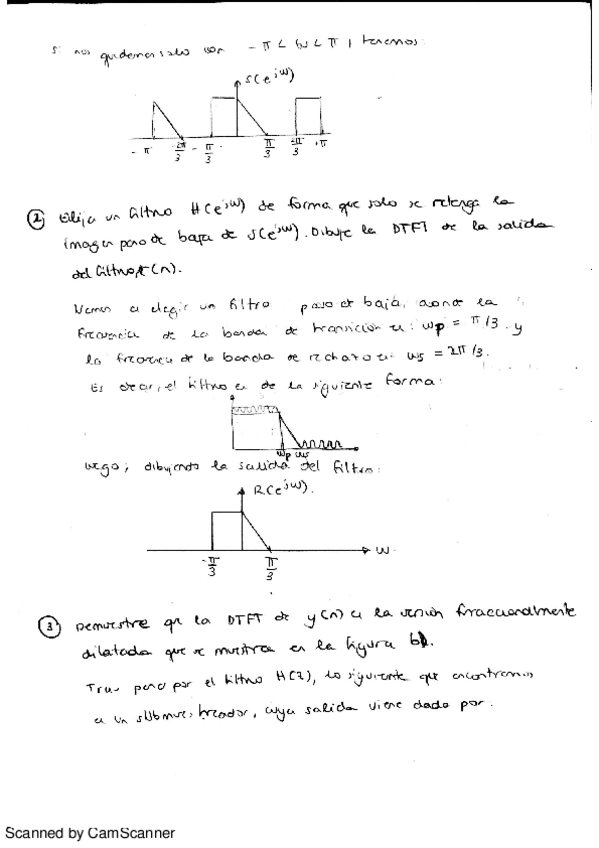 Si nos quedamos solo con -π < ω < π, tenemos:
S(e^jω)
-π -2π/3 -π/3 π/3 2π/3 +π
② Elija un filtro H(e^jω) de forma que solo se retenga la
imagen paso de baja de S(e^jω). Dibuje la DTFT de la salida
del filtro, r(n).
Vamos a elegir un filtro paso de baja, donde la
frecuencia de la banda de transición es: ωp = π/3 . y
la frecuencia de la banda de rechazo es: ωs = 2π/3.
Es decir, el filtro es de la siguiente forma:
ωp ωs
Luego; dibujando la salida del filtro:
R(e^jω).
ω
-π/3 π/3
③ Demuestre que la DTFT de y(n) es la versión fraccionalmente
dilatada que se muestra en la figura b).
Tras pasar por el filtro H(z), lo siguiente que encontramos
es un submuestreador, cuya salida viene dado por:
Scanned by CamScanner